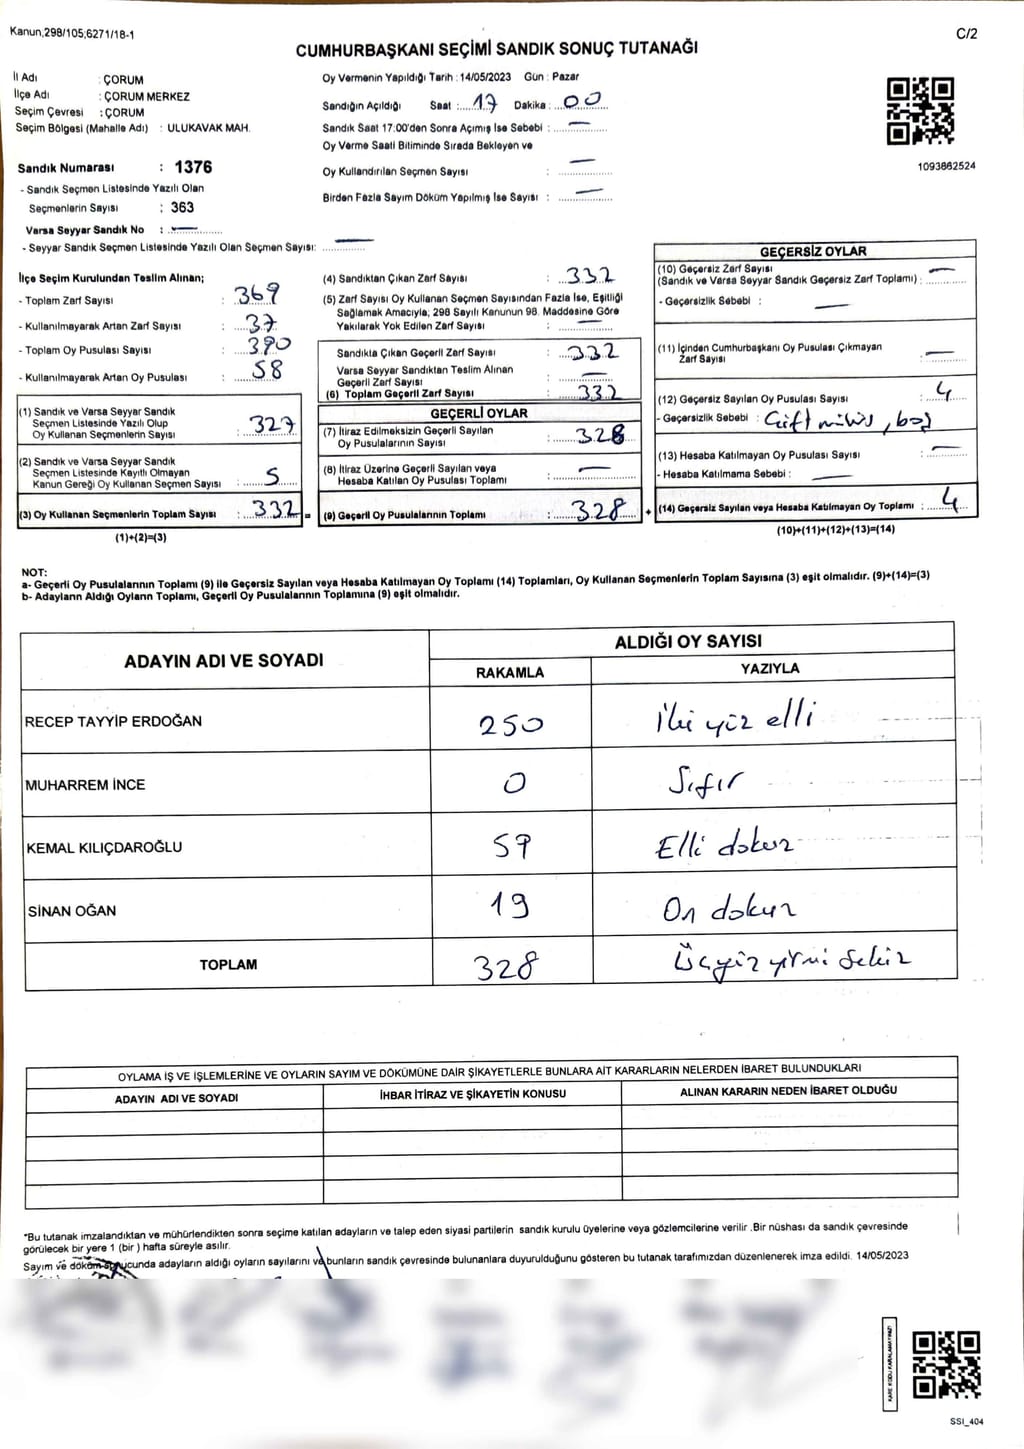 Kanun,298/105;6271/18-1
C/2
CUMHURBAŞKANI SEÇİMİ SANDIK SONUÇ TUTANAĞI
İl Adı : ÇORUM
İlçe Adı : ÇORUM MERKEZ
Seçim Çevresi : ÇORUM
Seçim Bölgesi (Mahalle Adı) : ULUKAVAK MAH.
Sandık Numarası : 1376
- Sandık Seçmen Listesinde Yazılı Olan
Seçmenlerin Sayısı : 363
Varsa Seyyar Sandık No : —
- Seyyar Sandık Seçmen Listesinde Yazılı Olan Seçmen Sayısı: —
Oy Vermenin Yapıldığı Tarih : 14/05/2023 Gün : Pazar
Sandığın Açıldığı Saat : 17 Dakika : 00
Sandık Saat 17:00'den Sonra Açımış İse Sebebi : —
Oy Verme Saati Bitiminde Sırada Bekleyen ve
Oy Kullandırılan Seçmen Sayısı : —
Birden Fazla Sayım Döküm Yapılmış İse Sayısı : —
1093862524
İlçe Seçim Kurulundan Teslim Alınan;
- Toplam Zarf Sayısı : 369
- Kullanılmayarak Artan Zarf Sayısı : 37
- Toplam Oy Pusulası Sayısı : 390
- Kullanılmayarak Artan Oy Pusulası : 58
(1) Sandık ve Varsa Seyyar Sandık
Seçmen Listesinde Yazılı Olup
Oy Kullanan Seçmenlerin Sayısı : 327
(2) Sandık ve Varsa Seyyar Sandık
Seçmen Listesinde Kayıtlı Olmayan
Kanun Gereği Oy Kullanan Seçmen Sayısı : 5
(3) Oy Kullanan Seçmenlerin Toplam Sayısı : 332 =
(1)+(2)=(3)
(4) Sandıktan Çıkan Zarf Sayısı : 332
(5) Zarf Sayısı Oy Kullanan Seçmen Sayısından Fazla İse, Eşitliği
Sağlamak Amacıyla; 298 Sayılı Kanunun 98. Maddesine Göre
Yakılarak Yok Edilen Zarf Sayısı : —
Sandıkla Çıkan Geçerli Zarf Sayısı : 332
Varsa Seyyar Sandıktan Teslim Alınan
Geçerli Zarf Sayısı : —
(6) Toplam Geçerli Zarf Sayısı : 332
GEÇERLİ OYLAR
(7) İtiraz Edilmeksizin Geçerli Sayılan
Oy Pusulalarının Sayısı : 328
(8) İtiraz Üzerine Geçerli Sayılan veya
Hesaba Katılan Oy Pusulası Toplamı : —
(9) Geçerli Oy Pusulalarının Toplamı : 328 +
GEÇERSİZ OYLAR
(10) Geçersiz Zarf Sayısı
(Sandık ve Varsa Seyyar Sandık Geçersiz Zarf Toplamı) : —
- Geçersizlik Sebebi : —
(11) İçinden Cumhurbaşkanı Oy Pusulası Çıkmayan
Zarf Sayısı : —
(12) Geçersiz Sayılan Oy Pusulası Sayısı : 4
- Geçersizlik Sebebi : Çift mühür, boş
(13) Hesaba Katılmayan Oy Pusulası Sayısı : —
- Hesaba Katılmama Sebebi : —
(14) Geçersiz Sayılan veya Hesaba Katılmayan Oy Toplamı : 4
(10)+(11)+(12)+(13)=(14)
NOT:
a- Geçerli Oy Pusulalarının Toplamı (9) ile Geçersiz Sayılan veya Hesaba Katılmayan Oy Toplamı (14) Toplamları, Oy Kullanan Seçmenlerin Toplam Sayısına (3) eşit olmalıdır. (9)+(14)=(3)
b- Adayların Aldığı Oyların Toplamı, Geçerli Oy Pusulalarının Toplamına (9) eşit olmalıdır.
ADAYIN ADI VE SOYADI
ALDIĞI OY SAYISI
RAKAMLA YAZIYLA
RECEP TAYYİP ERDOĞAN 250 İki yüz elli
MUHARREM İNCE 0 Sıfır
KEMAL KILIÇDAROĞLU 59 Elli dokuz
SİNAN OĞAN 19 On dokuz
TOPLAM 328 Üçyüz yirmi sekiz
OYLAMA İŞ VE İŞLEMLERİNE VE OYLARIN SAYIM VE DÖKÜMÜNE DAİR ŞİKAYETLERLE BUNLARA AİT KARARLARIN NELERDEN İBARET BULUNDUKLARI
ADAYIN ADI VE SOYADI İHBAR İTİRAZ VE ŞİKAYETİN KONUSU ALINAN KARARIN NEDEN İBARET OLDUĞU
*Bu tutanak imzalandıktan ve mühürlendikten sonra seçime katılan adayların ve talep eden siyasi partilerin sandık kurulu üyelerine veya gözlemcilerine verilir .Bir nüshası da sandık çevresinde
görülecek bir yere 1 (bir ) hafta süreyle asılır.
Sayım ve döküm sonucunda adayların aldığı oyların sayılarını ve bunların sandık çevresinde bulunanlara duyurulduğunu gösteren bu tutanak tarafımızdan düzenlenerek imza edildi. 14/05/2023
KARE KODU KARALAMAYINIZ!
SSI_404